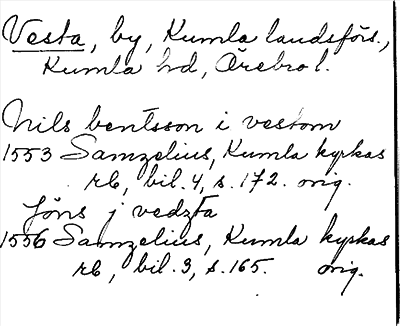 Vesta, by, Kumla landsförs.,
Kumla hd, Örebro l.
Nils bentsson i vestom
1553 Samzelius, Kumla kyrkas
rb, bil. 4, s. 172. orig.
Jöns j vedzta
1556 Samzelius, Kumla kyrkas
rb, bil. 3, s. 165. orig.